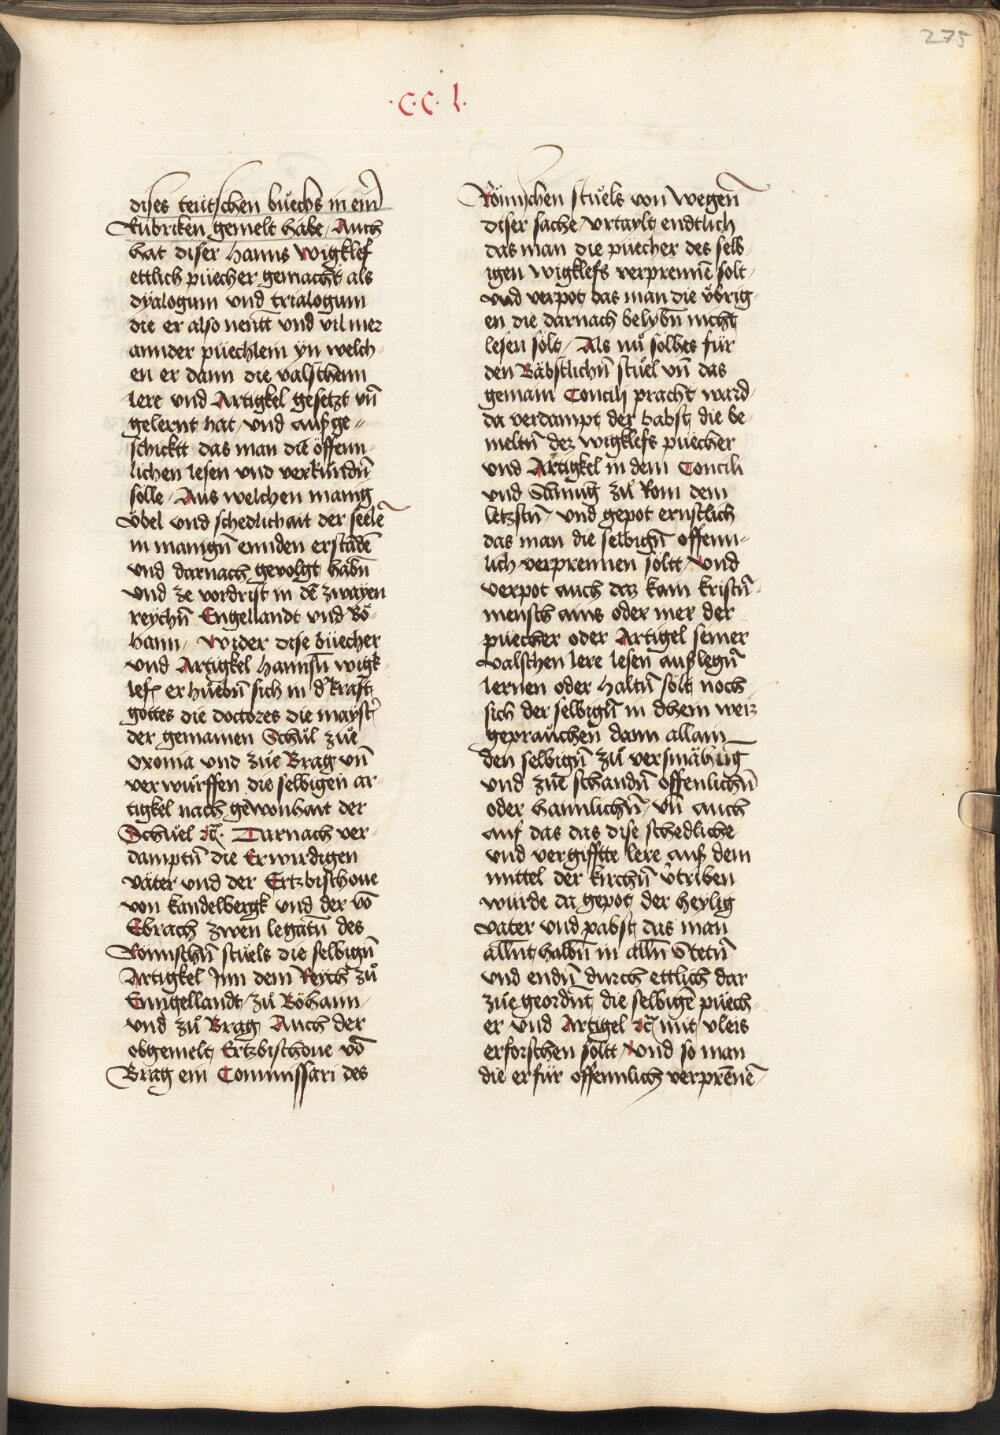 275
·C·C· l·
dises teütschen bůechs in ein̄
Rubriken gemelt habe / Auch
hat diser Hanns Wigklef
ettlich püecher gemacht als
dyalogum vnd trialogum
die er also nent vnd vil mer
annder püechlein yn welch-
en er dann die valschenn
lere vnd Artigkel gesetzt vn̄
gelernt hat / vnd ausz ge=
schicktt das man die öffenn-
lichen lesen vnd verkündn̄
sölle / Aus welchen manig
Vbel vnd schedlichait der seelē
in manign̄ ennden erstādē
vnd darnach gevolgt habn̄
vnd ze vordrist in dē zwayen
reychn̄ Engellandt vnd Bö-
hann / Wider dise büecher
vnd Artigkel Hannsn̄ wigk-
lefs er hůebn̄ sich in d' krafft
gottes die doctores die mayst'
der gemainen Schůl zůe
Oxonia vnd zůe Brag vn̄
verwürffen die selbigen ar-
tigkel nach gewonhait der
Schuel ⁊c̄. Darnach ver-
damptn̄ die Erwirdigen
väter vnd der Ertzbischoue
von kandelbergk vnd der vō
Ebrach zwen legatn̄ des
Römischn̄ stuels die selbign̄
Artigkel Inn dem Reych zů
Enngellandt / zů Böhann /
vnd zů Brag Auch der
obgemelt Ertzbischoue vō
Brag ein Commissari des
Römischen stůels von wegen̄
diser sache / vrtaylt endtlich
das man die püecher des selb-
igen wigklefs verprennē solt /
vnd verpot das man die vbrig-
en die darnach belybn̄ nicht
lesen solt / Als nů solhes für
den Bäbstlichn̄ stůel vn̄ das
gemain Concilj pracht ward /
da verdampt der babst die be-
meltn̄ dez wigklefs püecher
vnd Artigkel in dem Concili
vnd Samnḡ zů Rom dem
letzstn̄ / vnd gepot ernstlich
das man die selbign̄ offenn-
lich verprennen soltt / Vnd
verpot auch daz kain kristn̄-
mensch ains oder mer der
püecher oder Artigel seiner
valschen lere lesen auszlegn̄
lernen oder haltn̄ solt noch
sich der selbign̄ in dhem weiz
geprauchen dann allain
den selbign̄ zů versmähung
vnd zůe schandn̄ offenlichn̄
oder hannlichn̄ / vn̄ auch
auf das das dise schedliche
vnd vergifftte lere ausz dem
mittel der kirchn̄ v'triben
würde da gepot der heylig
vater vnd pabst das man
allnthalbn̄ in alln̄ Stetn̄
vnd endn̄ durch ettlich dar
zůe geordnt die selbigē püech-
er vnd Artigel ⁊c̄ mit vleis
erforschen soltt / Vnd so man
die erfür offennlich verprēnē